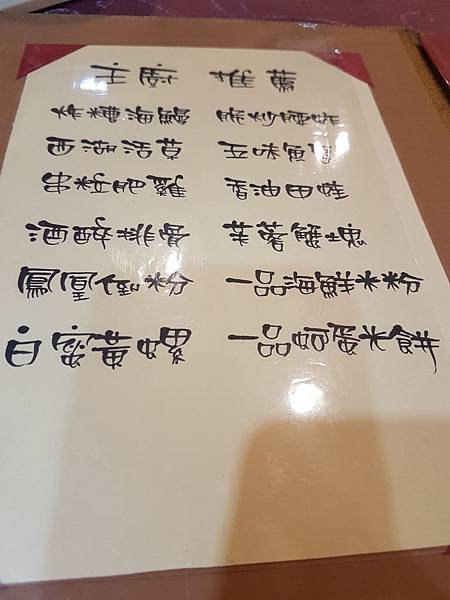 主廚 推薦
炸糟海鰻 脆炒腰
西湖活 五味魚
串粒肥雞 香油田蛙
酒醉排骨 芙蓉蟹塊
鳳凰 粉 一品海鮮米粉
白蜜黃螺 一品蚵蛋光餅